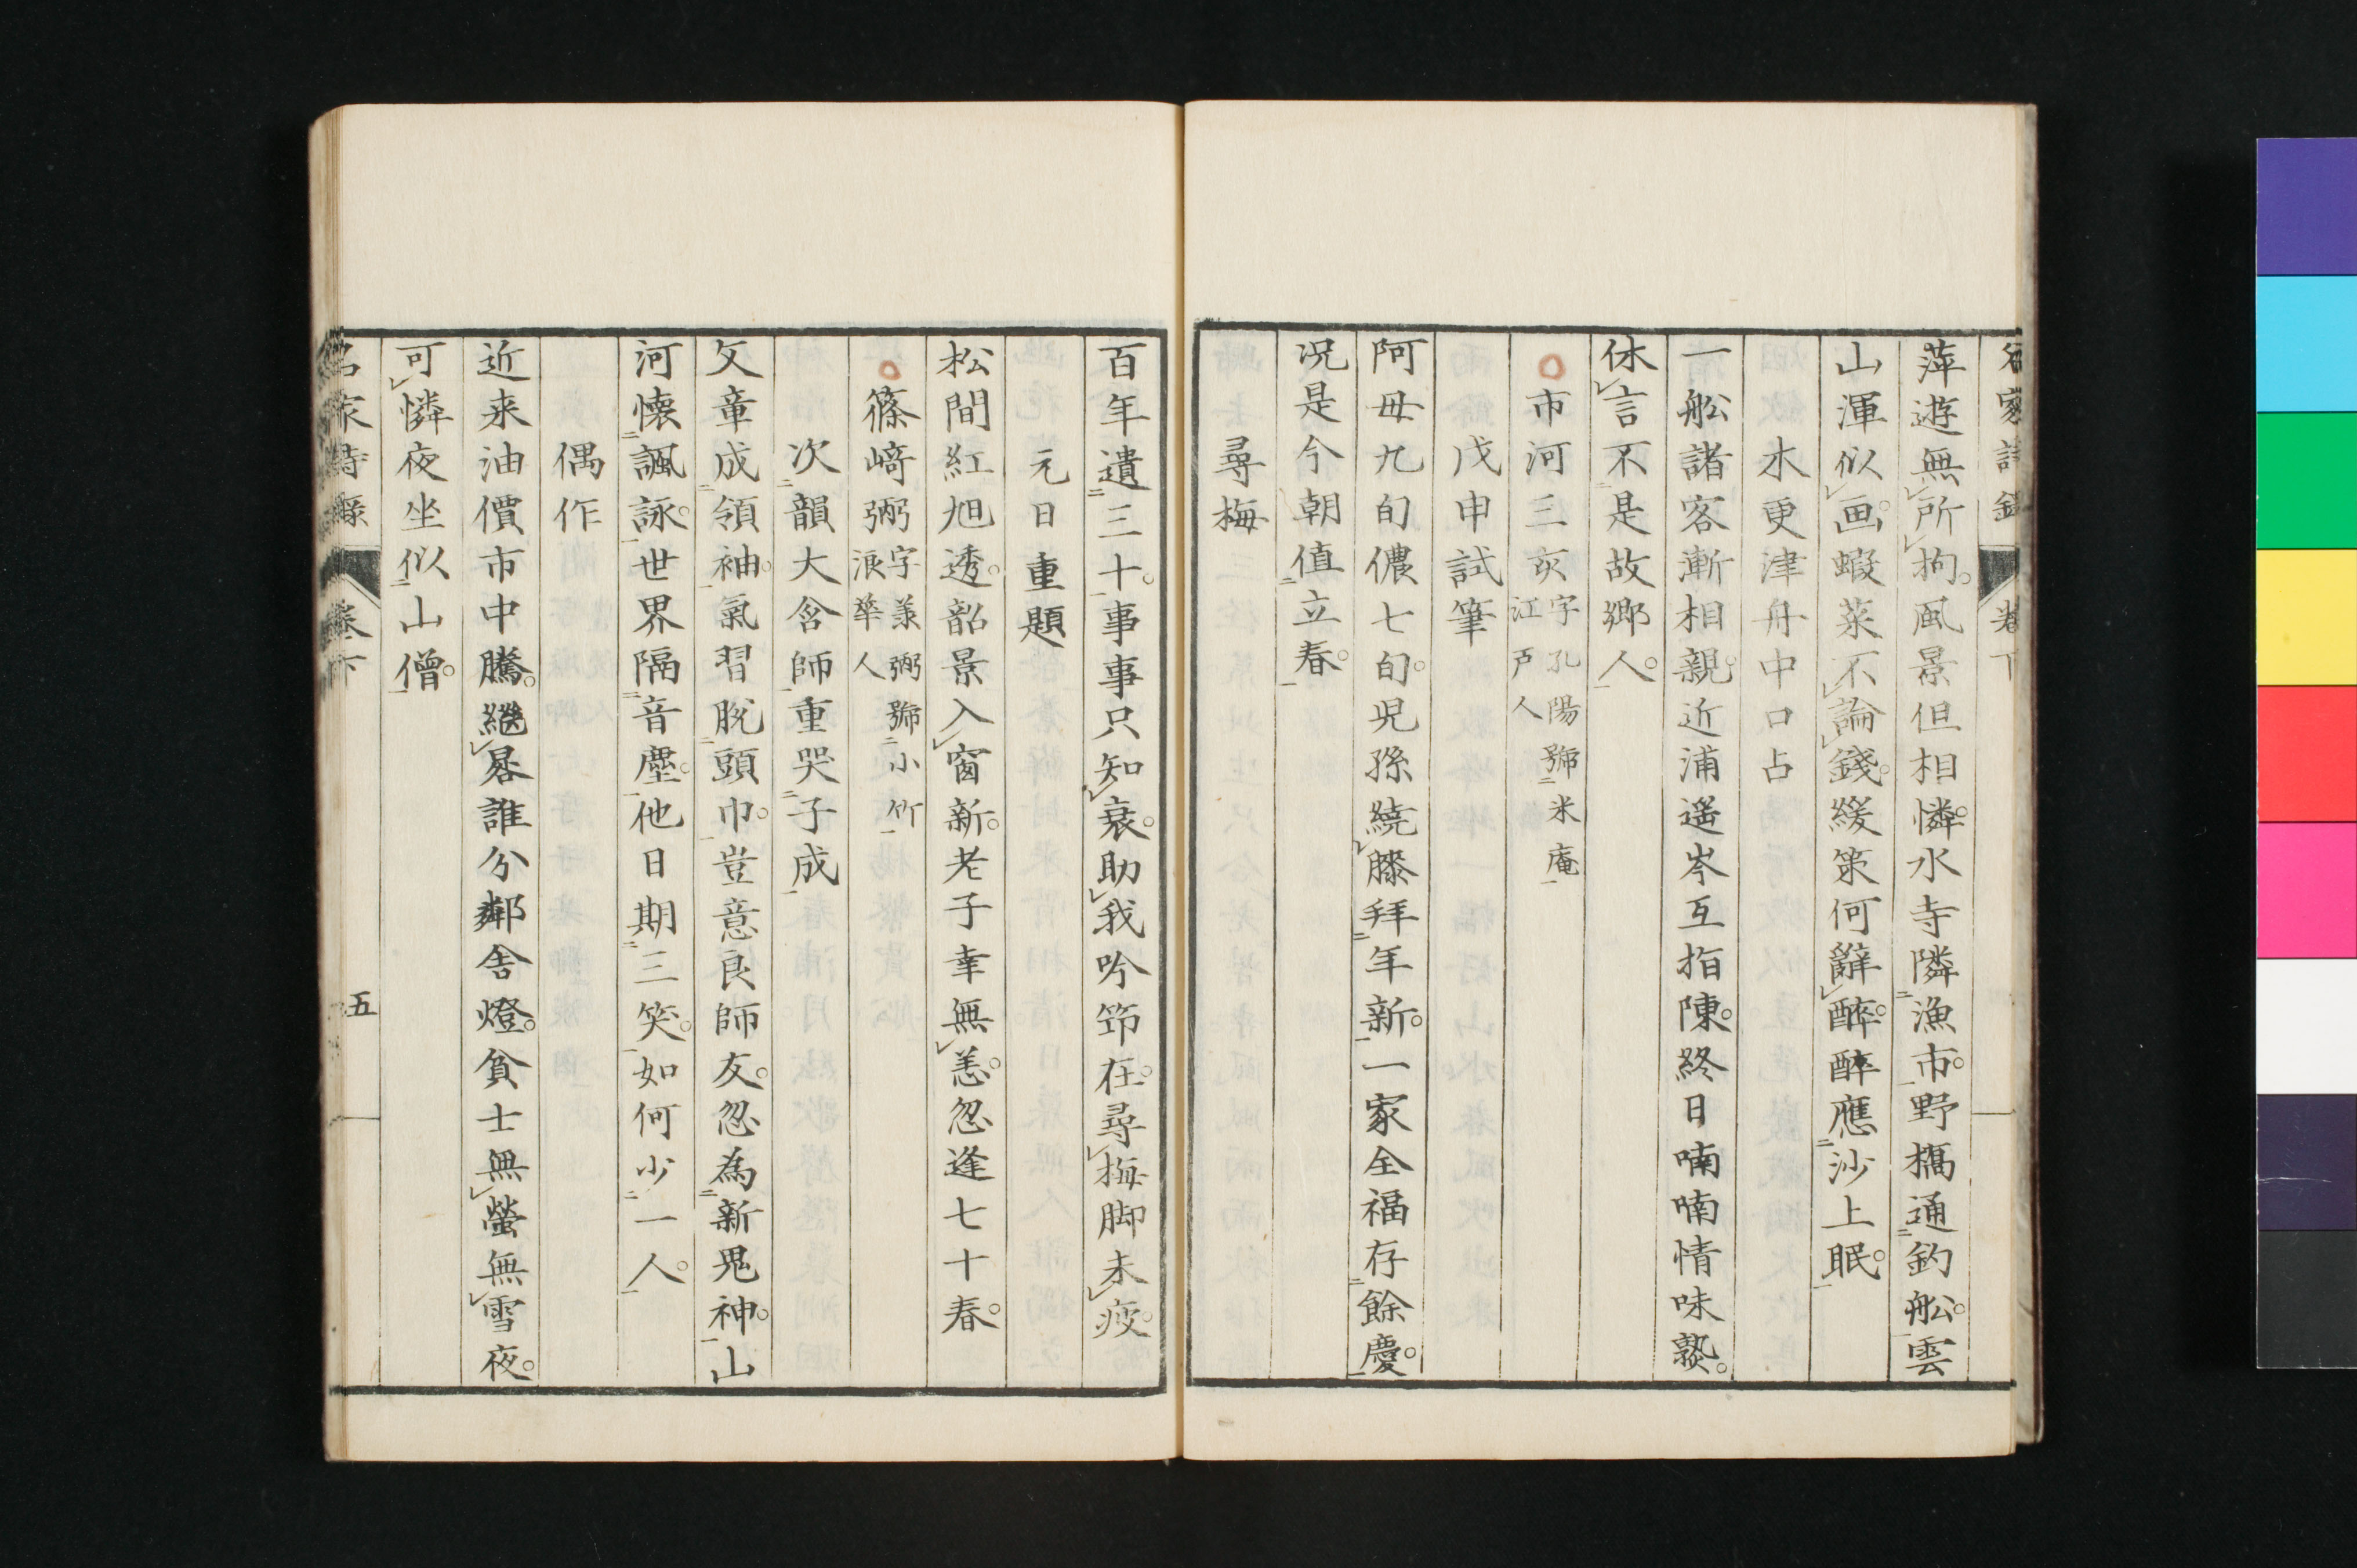 名家詩録 卷下
萍遊無所拘。風景但相憐。水寺隣漁市。野橋通釣舩。雲
山渾似画。蝦菜不論錢。緩策何辭醉。醉應沙上眠。
木更津舟中口占
一舩諸客漸相親。近浦遥岑互指陳。終日喃喃情味熟。
休言不是故郷人。
市河三亥 字孔陽號米庵
江戸人
戊申試筆
阿母九旬儂七旬。児孫繞膝拜年新。一家全福存餘慶。
况是今朝値立春。
尋梅
百年遺三十。事事只知衰。助我吟笻在。尋梅脚未疲。
元日重題
松間紅旭透。韶景入窗新。老子幸無恙。忽逢七十春。
篠﨑弼 字承弼號小竹
浪華人
次韻大含師重哭子成
文章成領袖。氣習脱頭巾。豈意良師友。忽為新鬼神。山
河懐諷詠。世界隔音塵。他日期三笑。如何少一人。
偶作
近来油價市中騰。繼晷誰分鄰舎燈。貧士無螢無雪夜。
可憐夜坐似山僧。
名家詩録 卷下 五